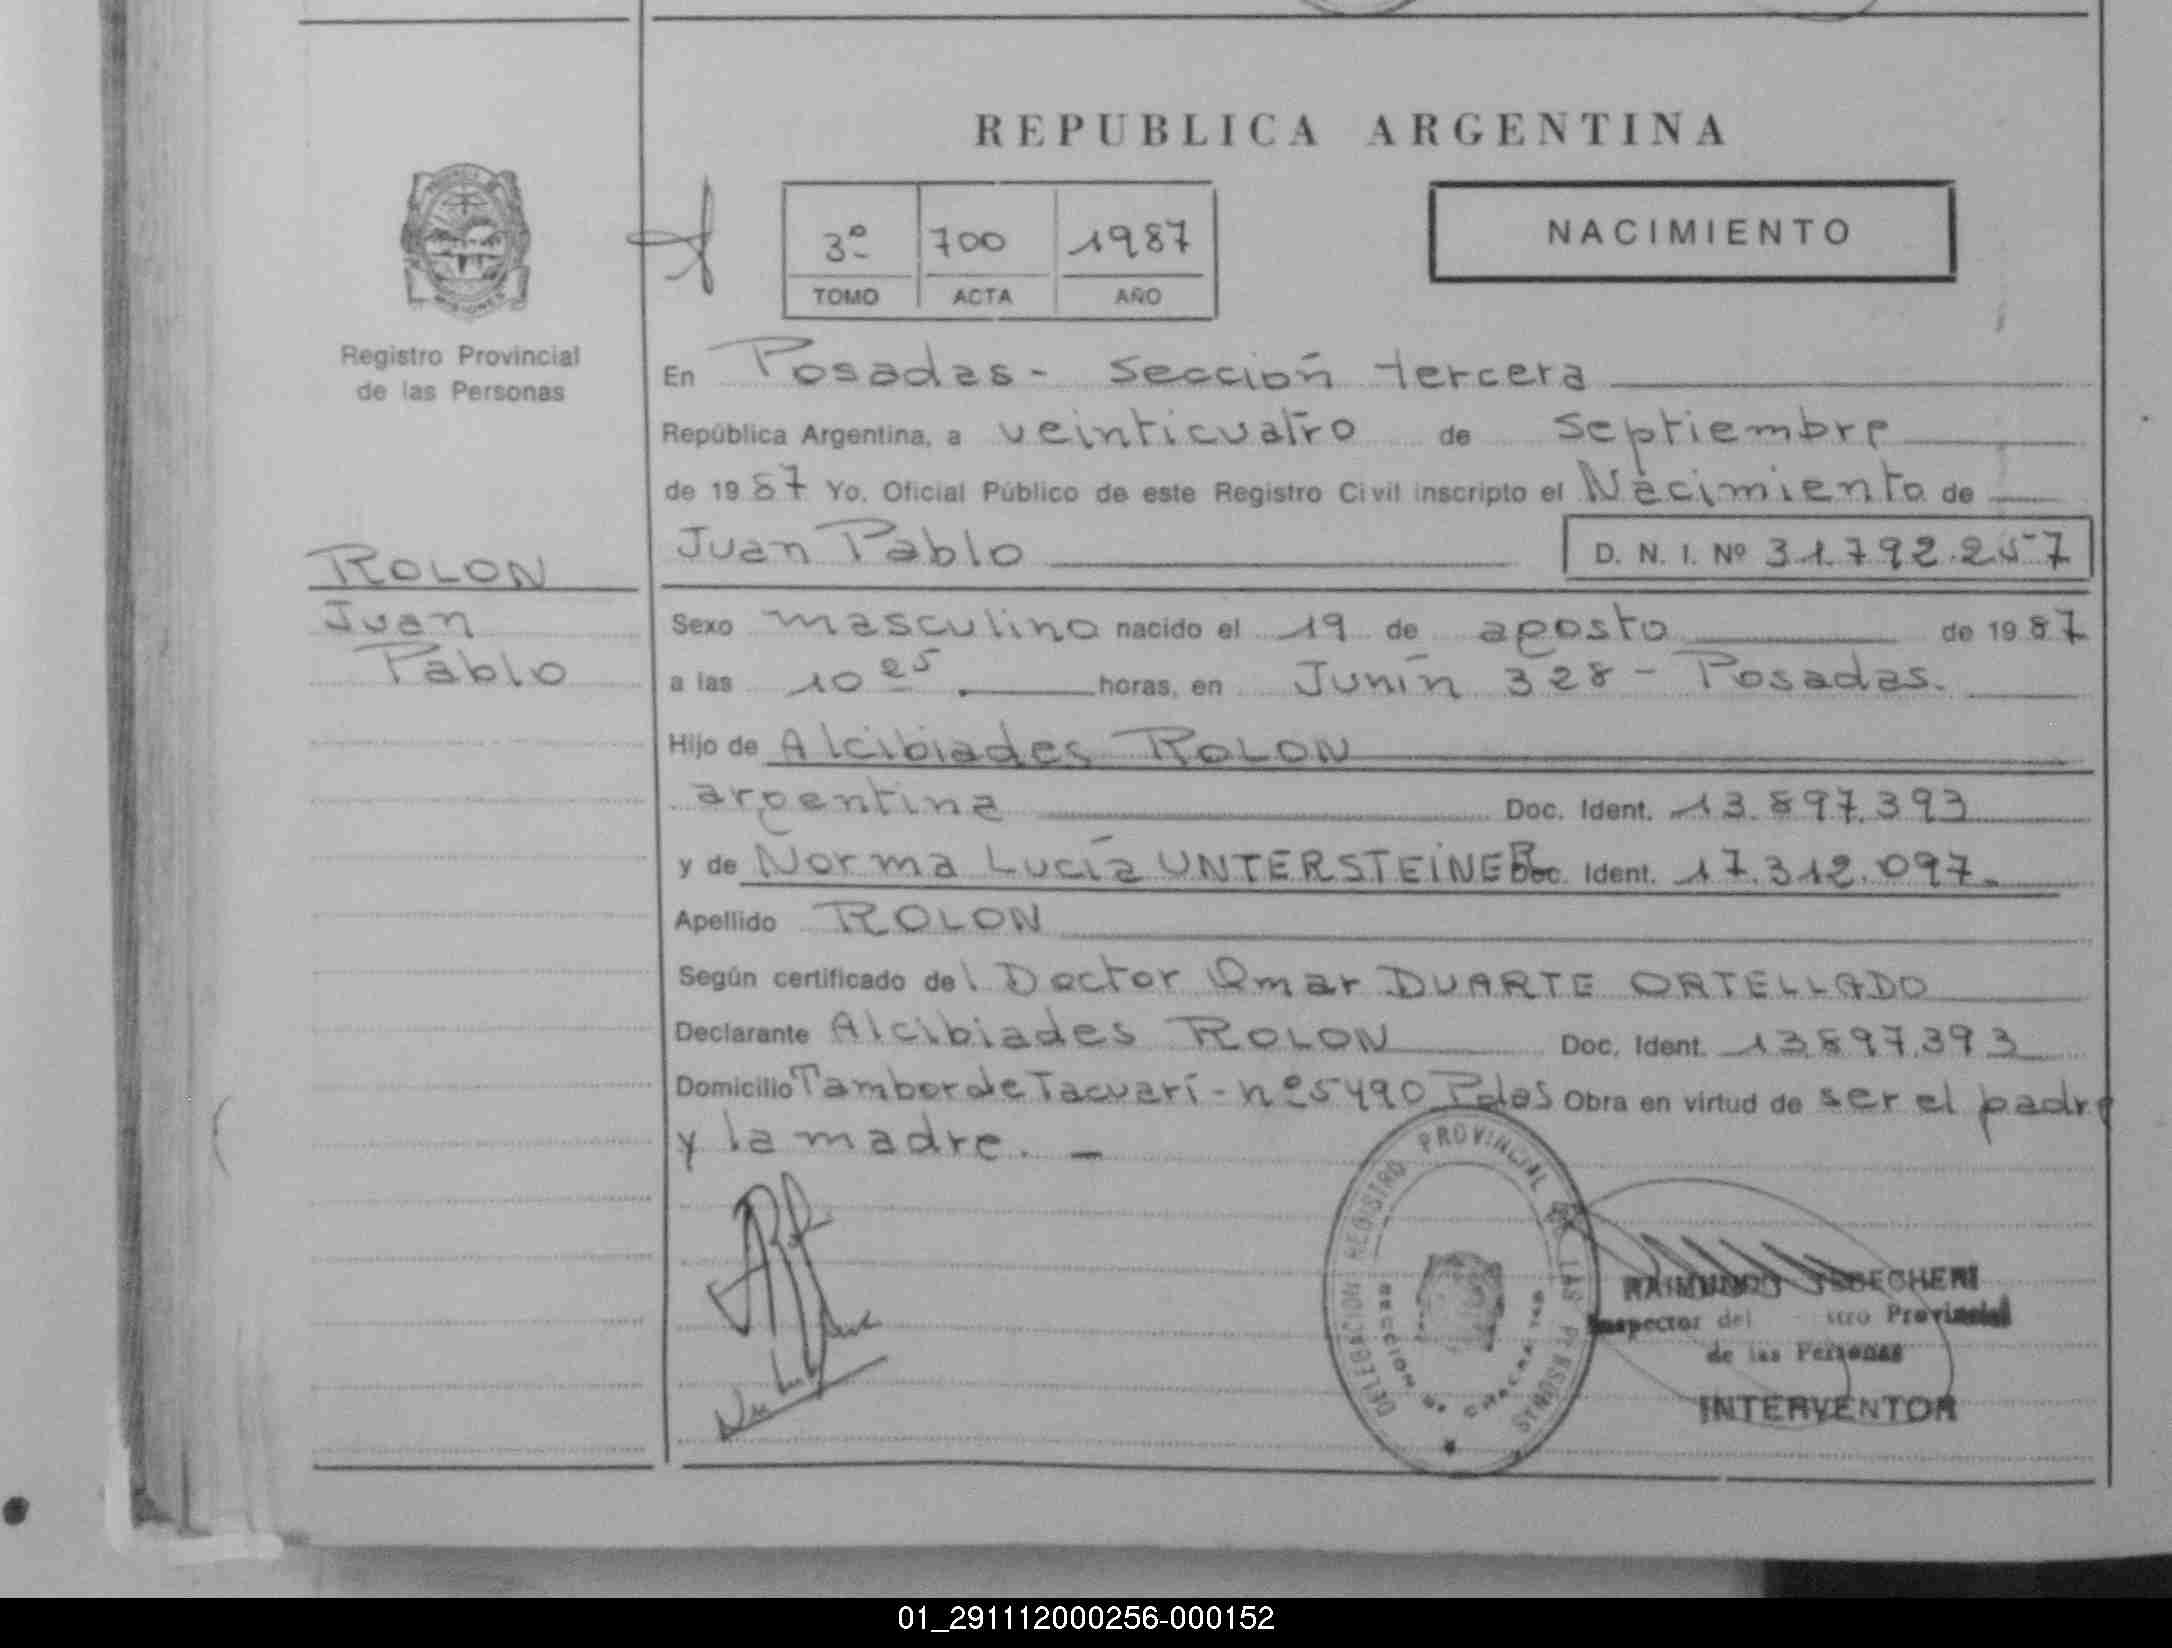 REPUBLICA ARGENTINA
3º 700 1987
TOMO ACTA AÑO
NACIMIENTO
MISIONES
Registro Provincial
de las Personas
ROLON
Juan
Pablo
En Posadas - Sección tercera
República Argentina, a veinticuatro de septiembre
de 1987 Yo. Oficial Público de este Registro Civil inscripto el Nacimiento de
Juan Pablo D. N. I. Nº 31.792.257
Sexo masculino nacido el 19 de agosto de 1987
a las 10 25 horas, en Junín 328 - Posadas.
Hijo de Alcibiades ROLON
argentina Doc. Ident. 13.897.393
y de Norma Lucía UNTERSTEINER Doc. Ident. 17.312.097.
Apellido ROLON
Según certificado del Doctor Omar DUARTE ORTELLADO
Declarante Alcibiades ROLON Doc. Ident. 13.897.393
Domicilio Tambor de Tacuarí - nº 5490 Pdas Obra en virtud de ser el padre
y la madre. -
DELEGACION REGISTRO PROVINCIAL DE LAS PERSONAS
SECCION
RAIMUNDO
Inspector del Provincial
de las Personas
INTERVENTOR
01_291112000256-000152